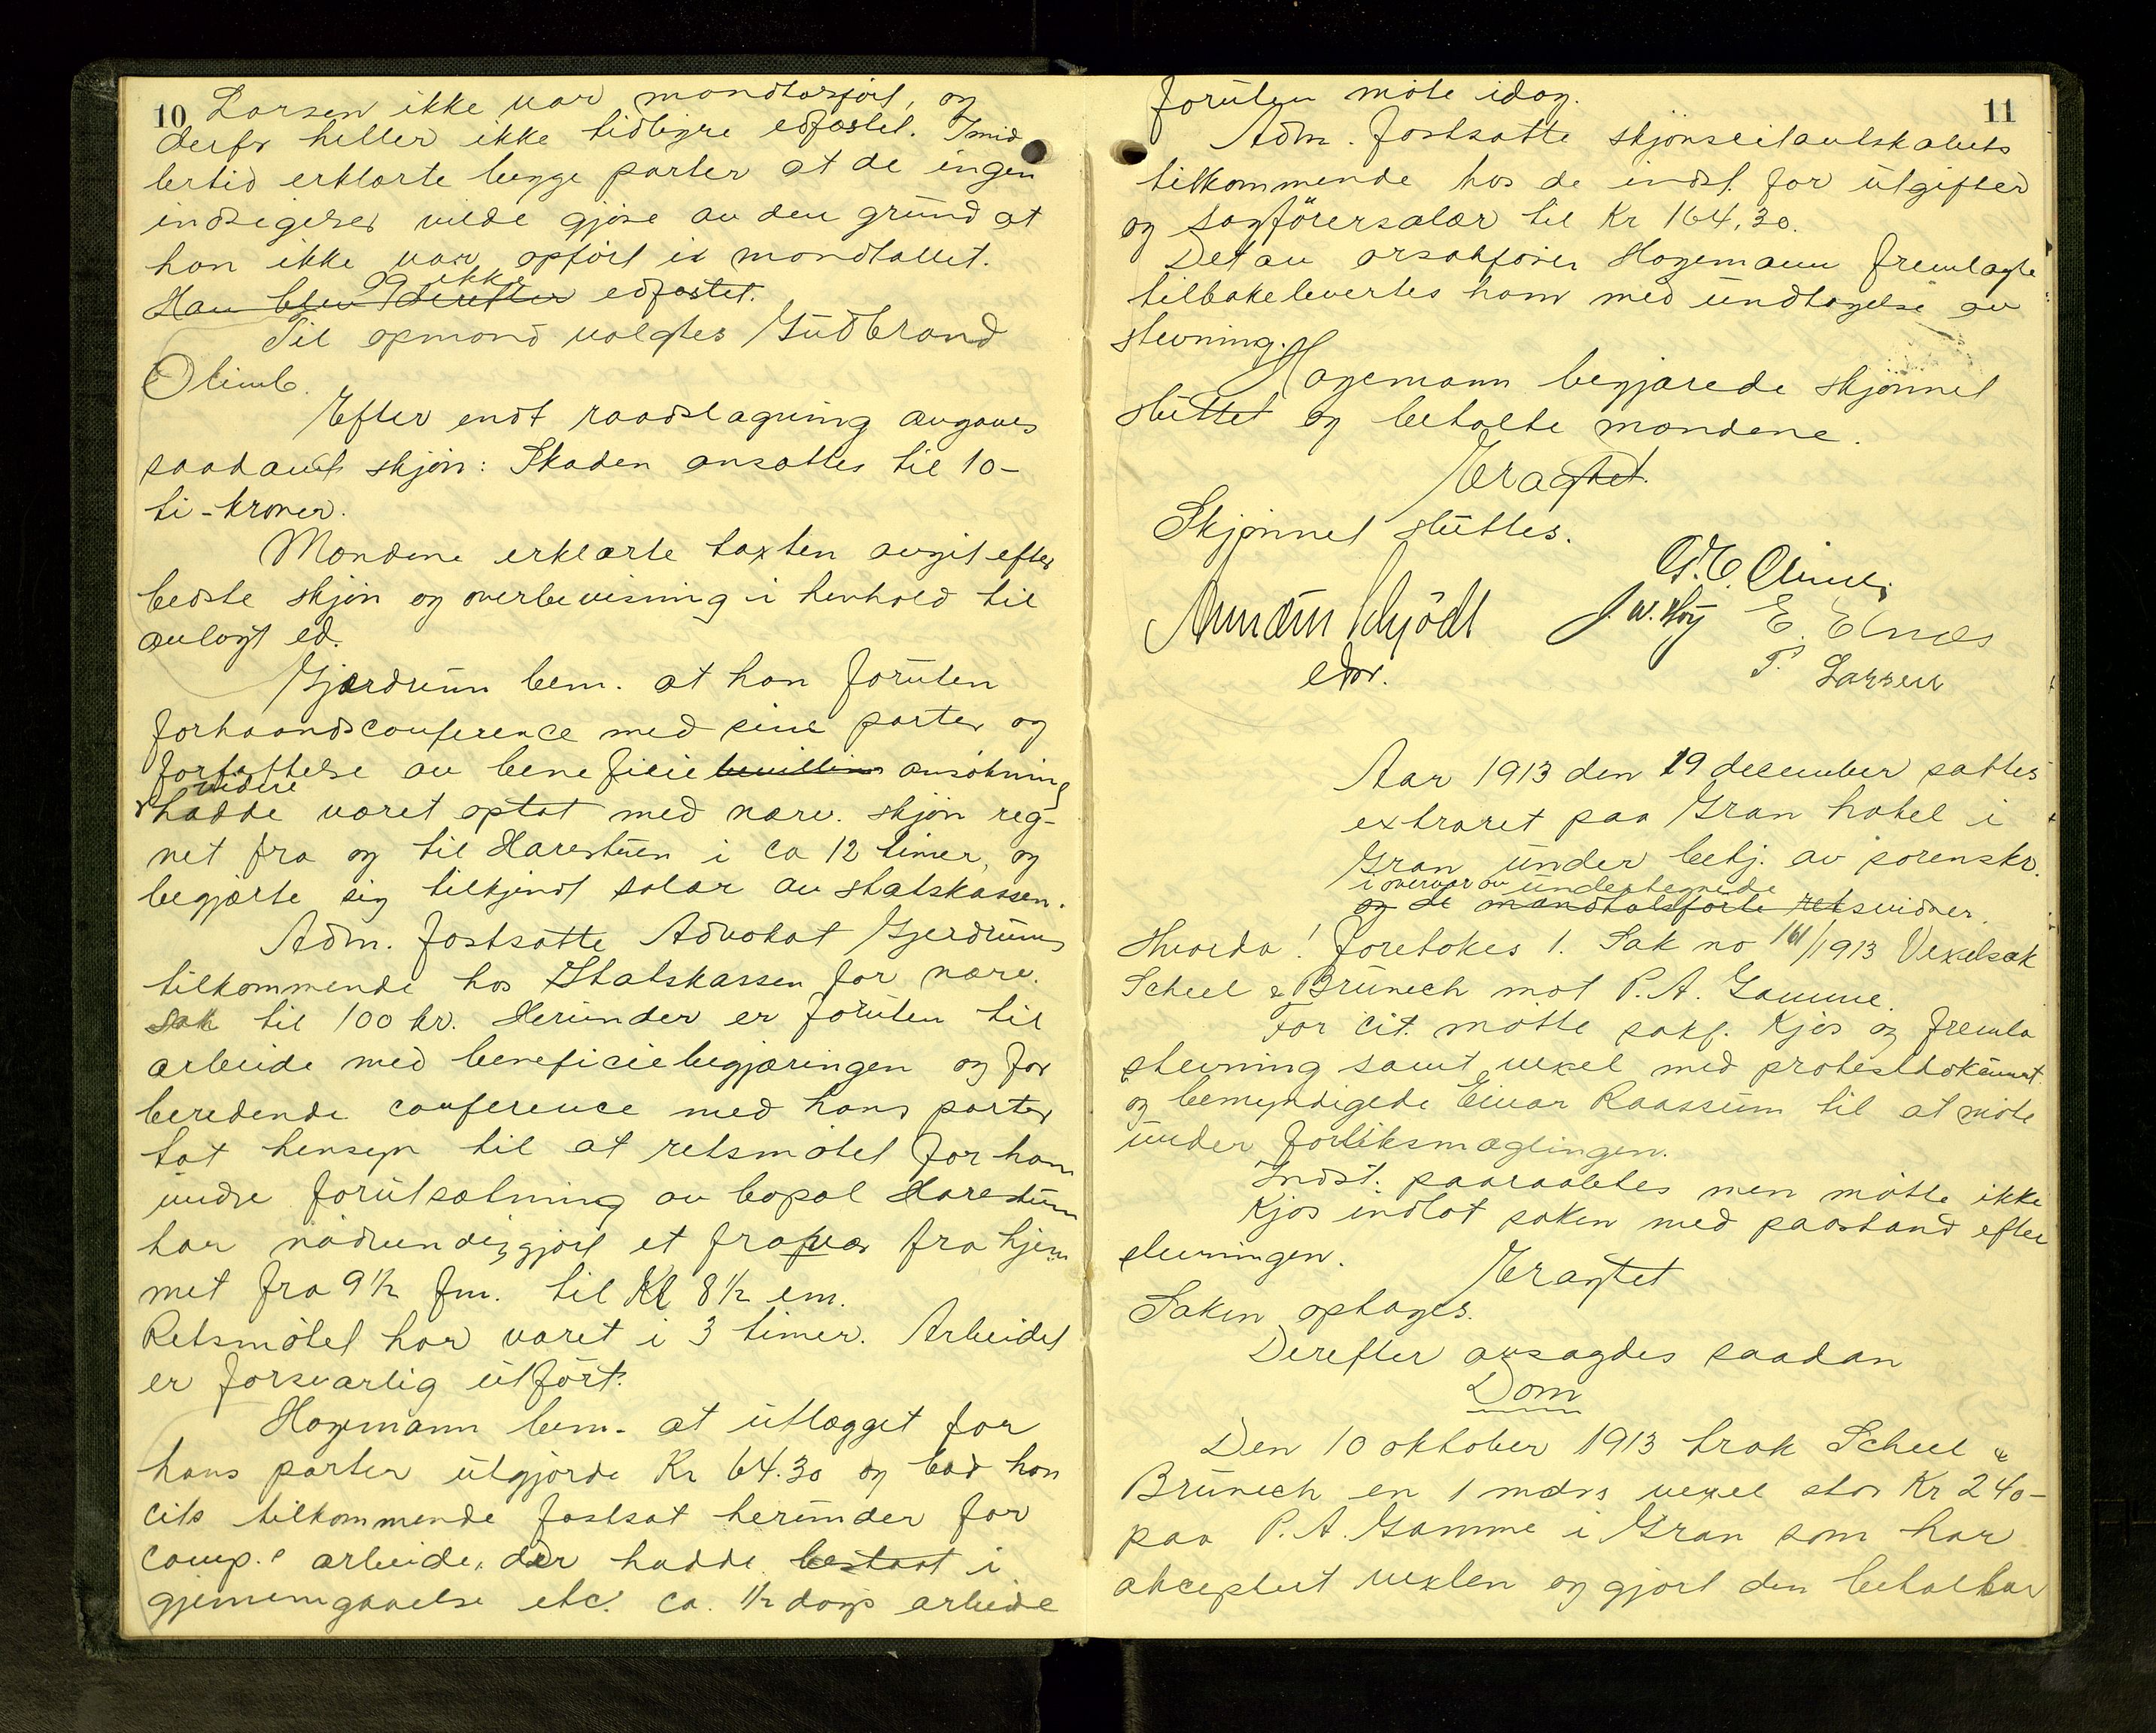 10
Larsen ikke var mandtasjört, og
derfr heller ikke tidligre edfæstet. Imid
lertid erklærte begge parter at de ingen
indsigelser vilde gjöre av den grund at
han ikke var opfört i mandtallet.
og ikke
Han blev derefter edfæstet.
Til opmand valgtes Gudbrand
Olimb.
Efter endt raadslagning avgaves
saadant skjön: Skaden ansattes til 10-
ti-kroner.
Mændene erklærte taxten avgit efter
bedste skjön og overbevisning i henhold til
avlagt ed.
Gjærdrum bem. at han foruten
forhaandsconference med sine parter og
forfattelse av beneficie bevilling ansökning
videre
hadde været optat med nærv. skjön reg-
net fra og til Harestuen i ca 12 timer, og
begjærte sig tilkjendt salær av statskassen.
Adm. fastsatte Advokat Gjerdrums
tilkommende hos Statskassen for nærv.
sak til 100 kr. Herunder er foruten til
arbeide med beneficiebegjæringen og for
beredende conference med hans parter
tat hensyn til at retsmötet for ham
under forutsætning av bopæl Harestuen
har nödvendiggjort et fravær fra hjem
met fra 9½ fm. til Kl 8½ em.
Retsmötet har varet i 3 timer. Arbeidet
er forsvarlig utfört.
Hagemann bem. at utlægget for
hans parter utgjorde Kr 64.30 og bad han
cits tilkommende fastsat herunder for
comp.s arbeide, der hadde bestaat i
gjennemgaaelse etc. ca. ½ dags arbeide
11
foruten möte idag.
Adm. fastsatte skjönseitantskabets
tilkommende hos de indst. for utgifter
og sagförersalær til Kr 164,30.
Det av orsakförer Hagemann fremlagte
tilbakelevertes ham med undtagelse av
stevning.
Hagemann begjærede skjönnet
sluttet og betalte mændene.
Eragtet.
Skjönnet sluttes.
G. E. Olimb.
J. W. Höy E. Elnæs
P. Larsen
Aar 1913 den 19 december sattes
extraret paa Gran hotel i
Gran under betj. av sorenskr.
i overvær av undertegnede
og de mandtalsförte retsvidner.
Hvorda! foretokes 1. Sak no 161/1913 Vexelsak
Scheel & Brünech mot P. A. Gamme.
For cit. mötte sakf. Kjös og fremla
stevning samt vexel med protestdokument
og bemyndigede Einar Raassum til at möte
under forliksmæglingen.
Indst. paaraabtes men mötte ikke
Kjös indlot saken med paastand efter
stevningen.
Eragtet
Saken optages.
Derefter avsagdes saadan
Dom
Den 10 oktober 1913 trak Scheel &
Brünech en 1 mdrs vexel stor Kr 240-
paa P. A. Gamme i Gran som har
akceptert vexlen og gjort den betalbar